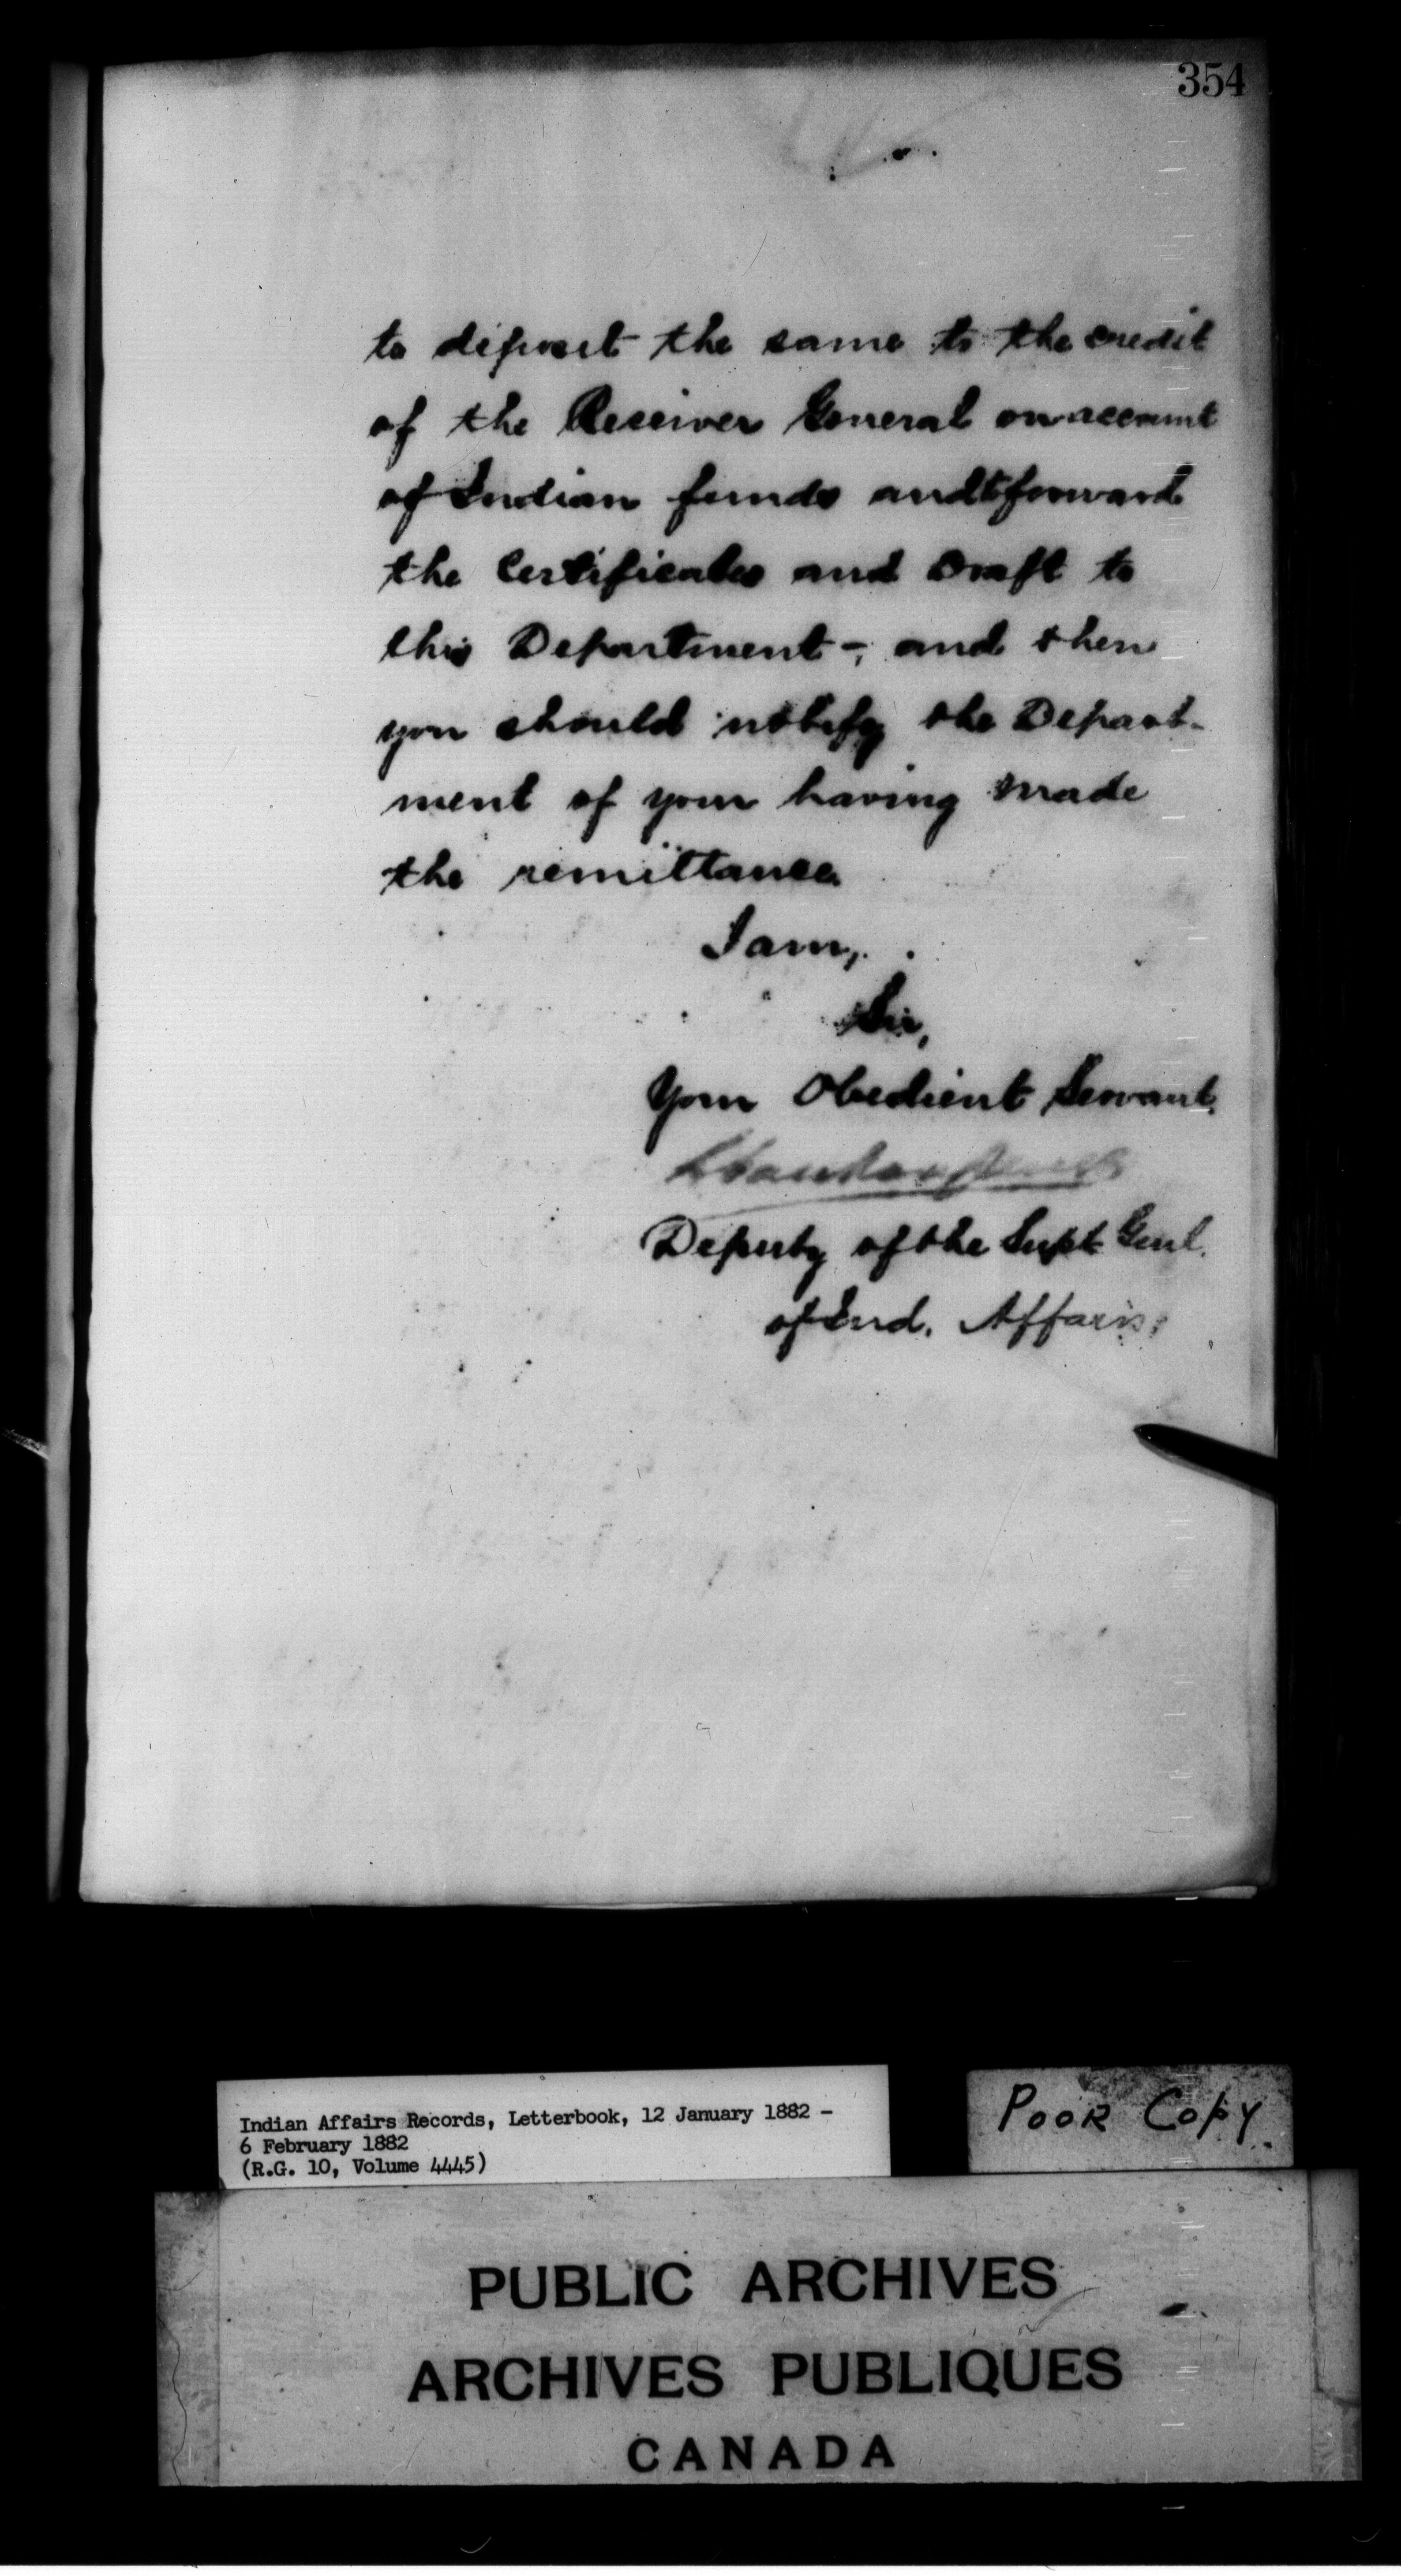 354
to deposit the same to the credit
of the Receiver General on account
of Indian funds and to forward
the Certificates and Draft to
this Department -, and then
you should notify the Depart-
ment of your having made
the remittance
I am,
Sir,
Your Obedient Servant
Deputy of the Supt Genl.
of Ind. Affairs
Indian Affairs Records, Letterbook, 12 January 1882 -
6 February 1882
(R.G. 10, Volume 4445)
POOR COPY
PUBLIC ARCHIVES
ARCHIVES PUBLIQUES
CANADA